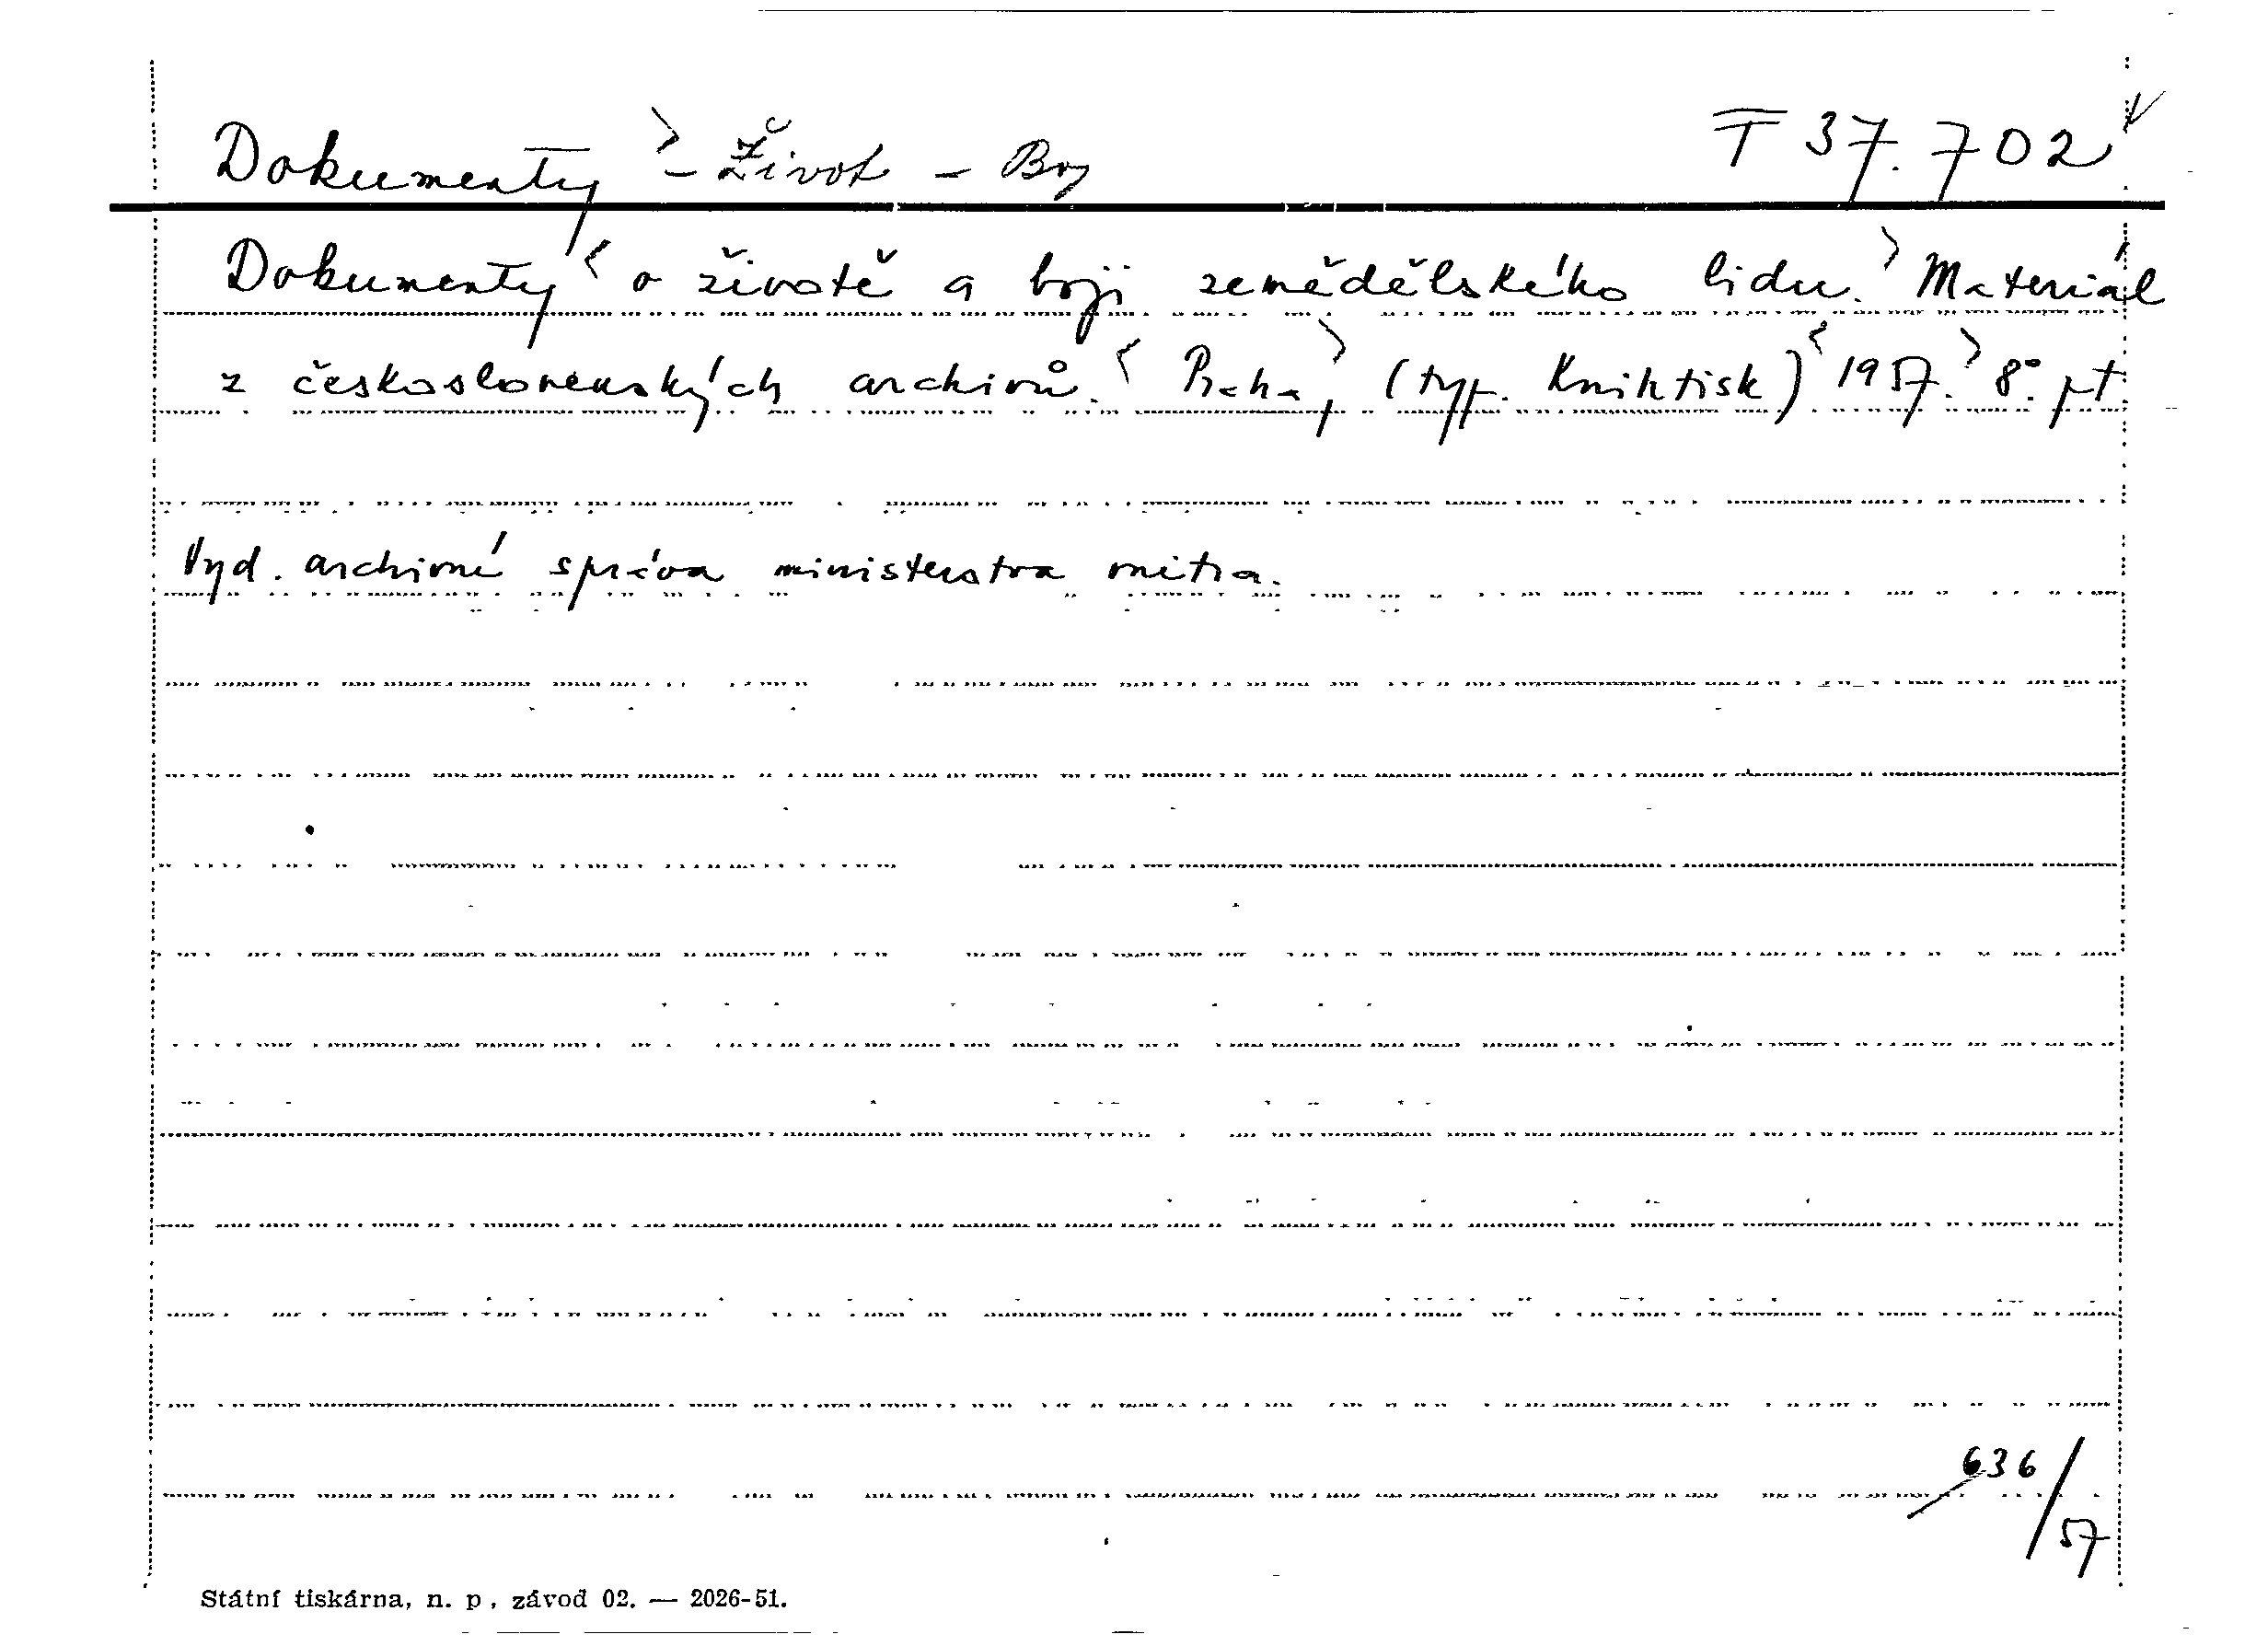 Dokumenty - Život - Boj T 37.702
Dokumenty o životě a boji zemědělského lidu. Materiál
z československých archivů. Praha, (typ. Knihtisk) 1957. 8°. pt.
Vyd. archivní správa ministerstva vnitra.
636/57
Státní tiskárna, n. p., závod 02. — 2026-51.